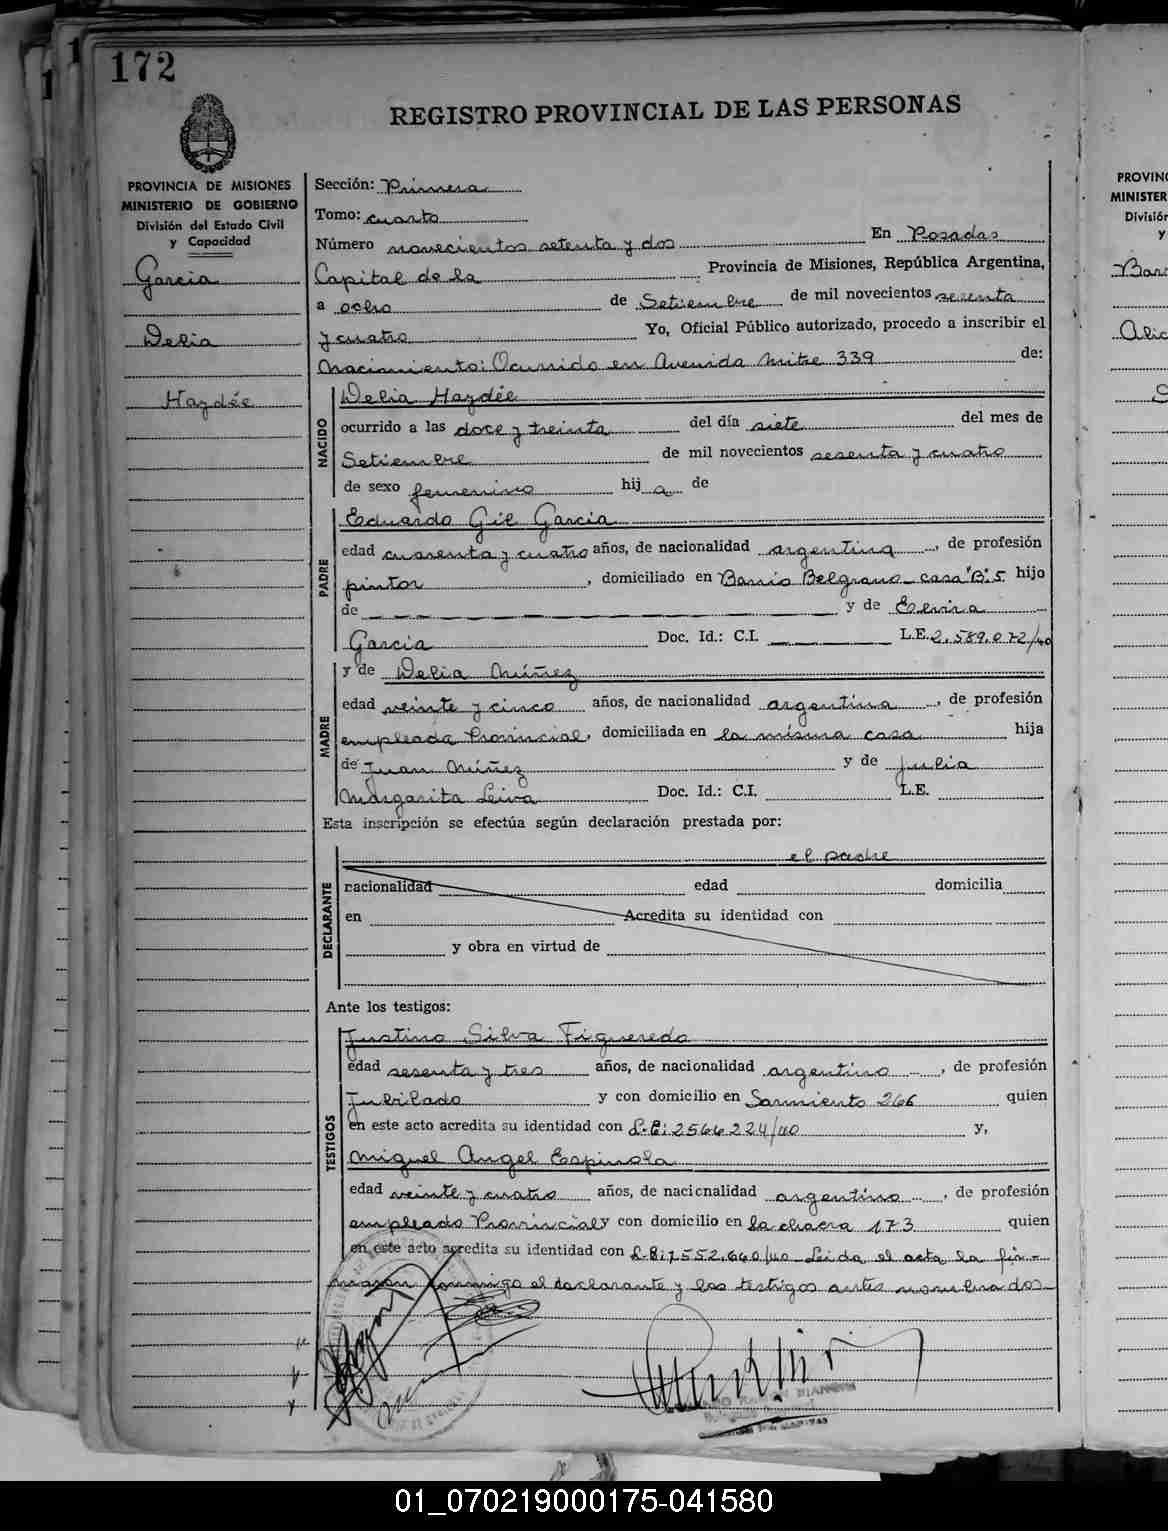 172
REGISTRO PROVINCIAL DE LAS PERSONAS
PROVINCIA DE MISIONES
MINISTERIO DE GOBIERNO
División del Estado Civil
y Capacidad
Garcia
Delia
Haydée
Sección: Primera
Tomo: cuarto
Número novecientos setenta y dos En Posadas
Capital de la Provincia de Misiones, República Argentina,
a ocho de Setiembre de mil novecientos sesenta
y cuatro Yo, Oficial Público autorizado, procedo a inscribir el
Nacimiento: Ocurrido en Avenida Mitre 339 de:
NACIDO
Delia Haydée
ocurrido a las doce y treinta del día siete del mes de
Setiembre de mil novecientos sesenta y cuatro
de sexo femenino hij a de
PADRE
Eduardo Gil Garcia
edad cuarenta y cuatro años, de nacionalidad argentina, de profesión
pintor, domiciliado en Barrio Belgrano casa "B" 5 hijo
de y de Elvira
Garcia Doc. Id.: C.I. L.E. 2.589.072/40
MADRE
y de Delia Núñez
edad veinte y cinco años, de nacionalidad argentina, de profesión
empleada Provincial, domiciliada en la misma casa hija
de Juan Núñez y de Julia
Margarita Leiva Doc. Id.: C.I. L.E.
Esta inscripción se efectúa según declaración prestada por:
DECLARANTE
el padre
nacionalidad edad domicilia
en Acredita su identidad con
y obra en virtud de
Ante los testigos:
TESTIGOS
Justino Silva Figueredo
edad sesenta y tres años, de nacionalidad argentino, de profesión
Jubilado y con domicilio en Sarmiento 266 quien
en este acto acredita su identidad con L.E: 2566224/40 y,
Miguel Angel Espinola
edad veinte y cuatro años, de nacionalidad argentino, de profesión
empleado Provincial y con domicilio en la chacra 173 quien
en este acto acredita su identidad con L.E: 7.552.660/40 Leida el acta la fir-
maron conmigo el declarante y los testigos antes nombrados
PROVINC
MINISTER
División
y
Alic
01_070219000175-041580